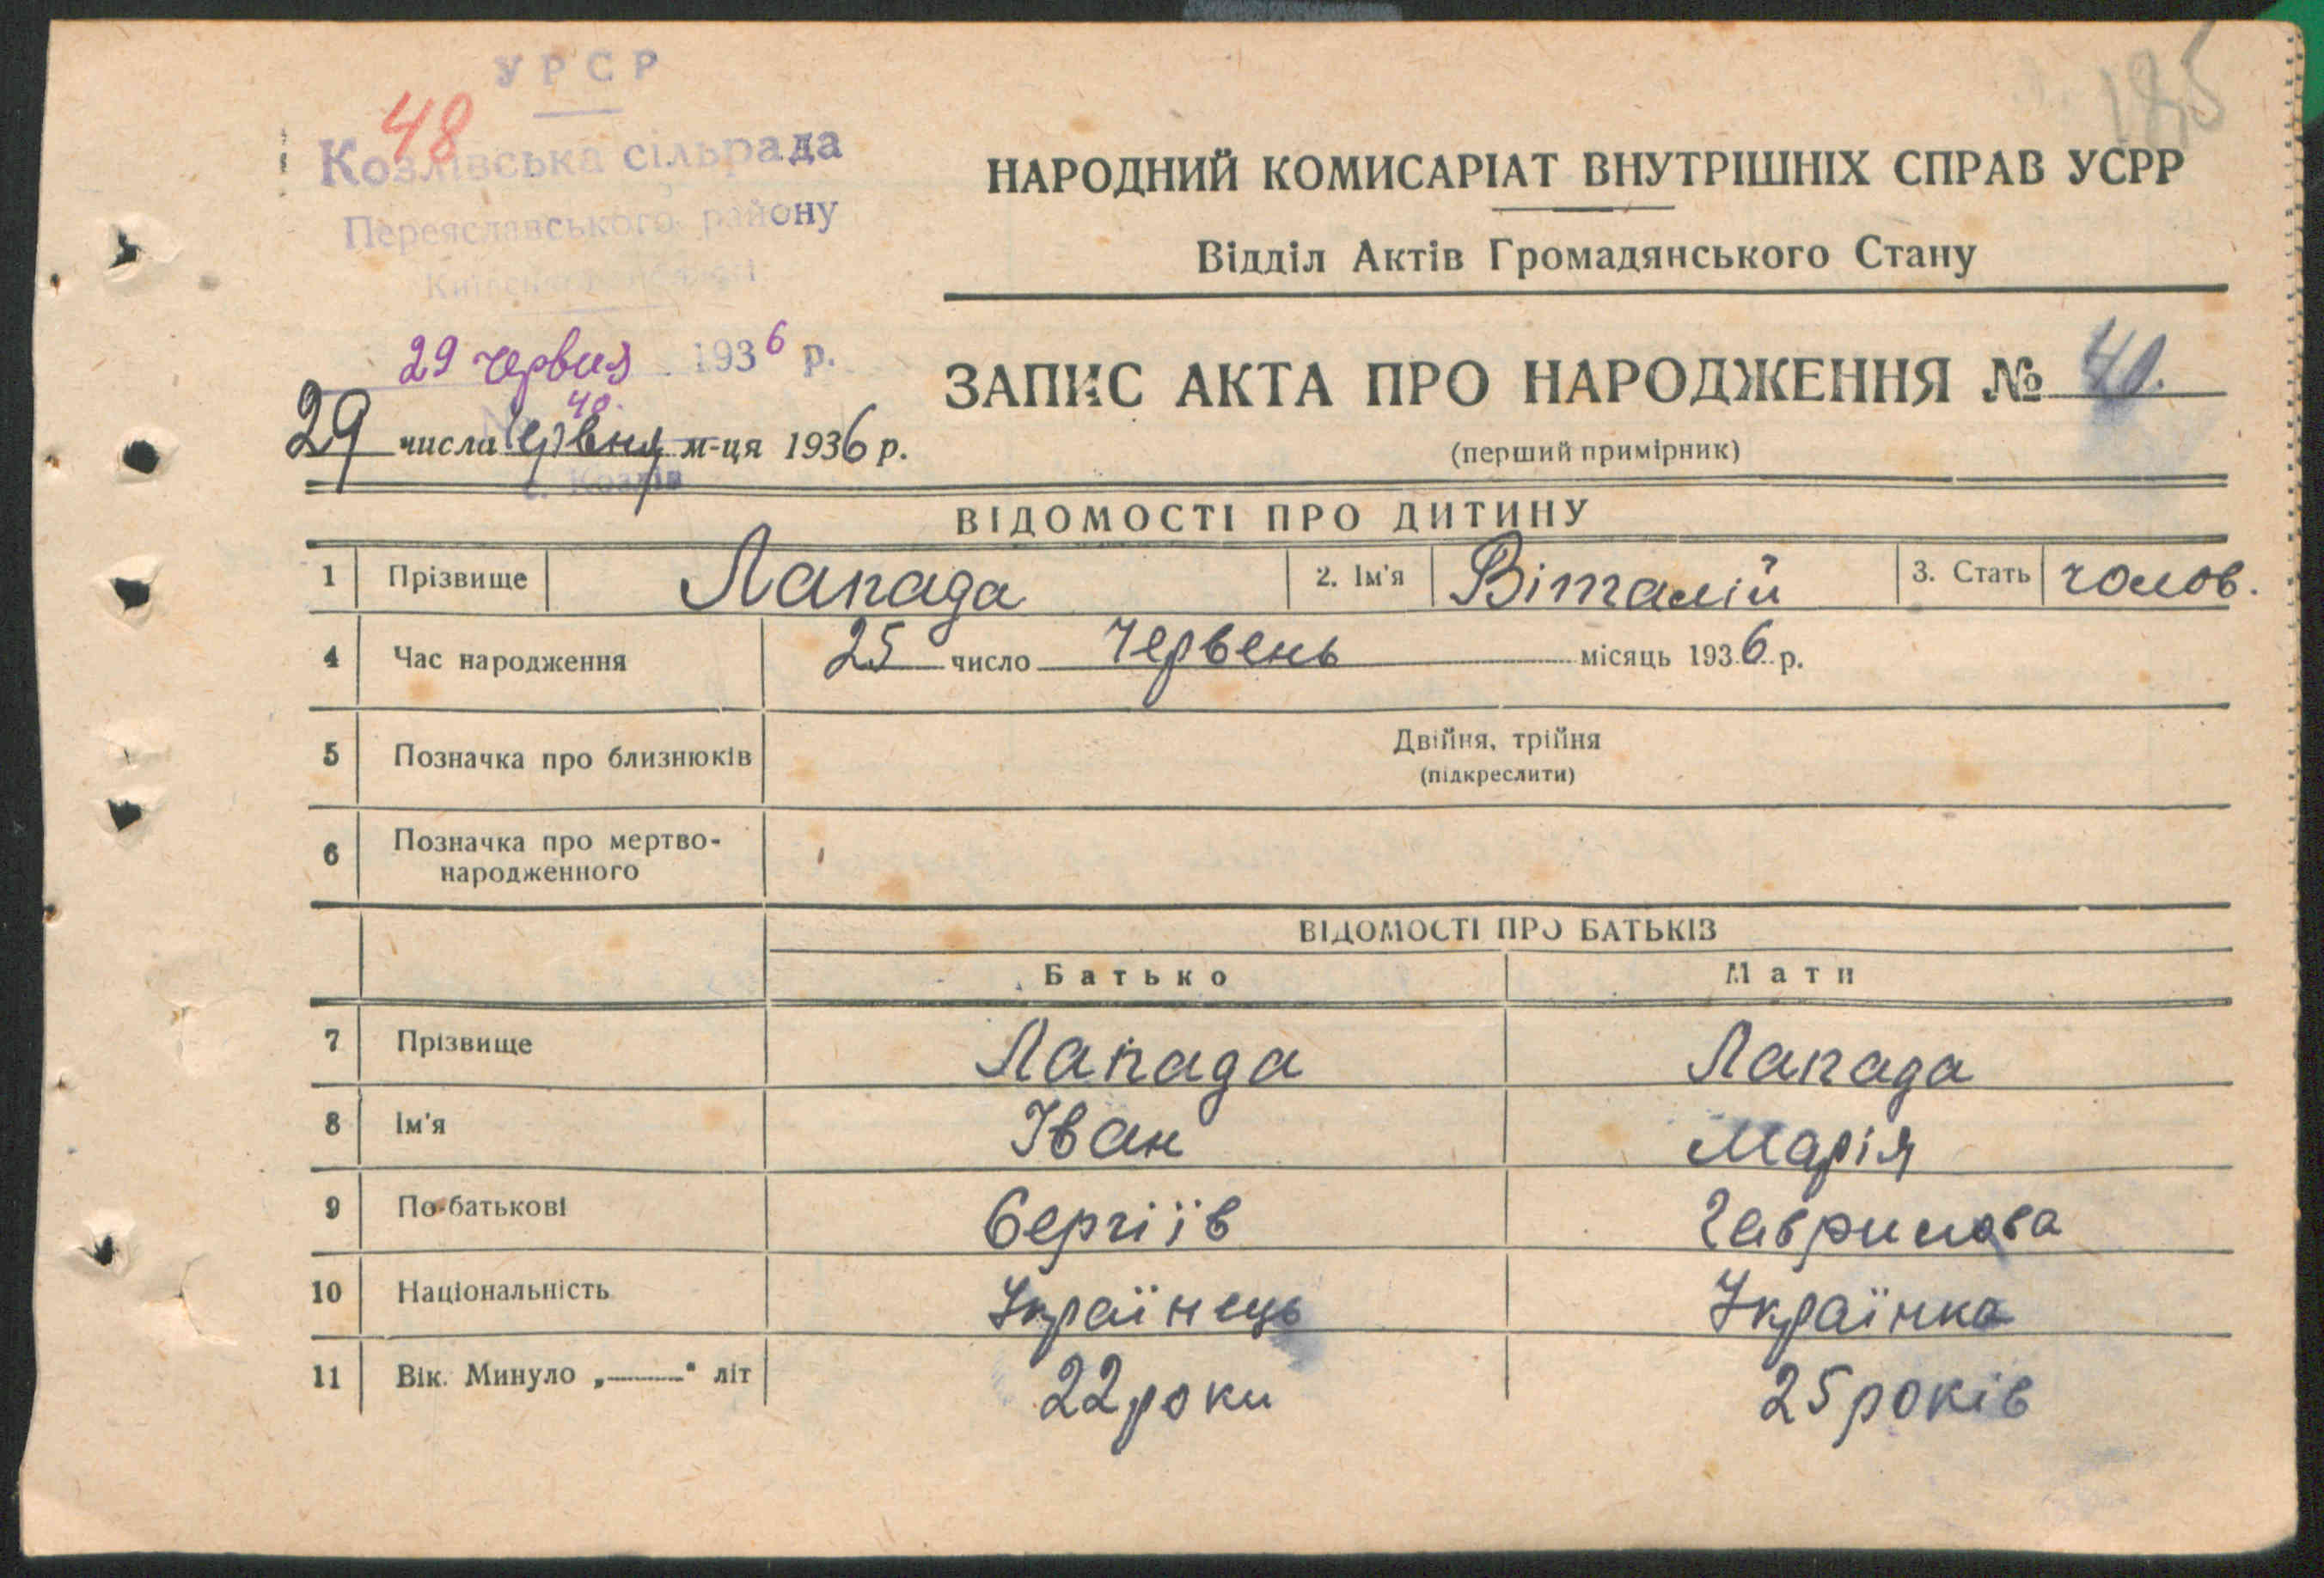 УРСР
48
185
Козлівська сільрада
Переяславського району
НАРОДНИЙ КОМИСАРІАТ ВНУТРІШНІХ СПРАВ УСРР
Відділ Актів Громадянського Стану
29 червня 1936 р.
40.
ЗАПИС АКТА ПРО НАРОДЖЕННЯ № 40.
29 числа червня м-ця 1936 р.
(перший примірник)
с. Козлів
ВІДОМОСТІ ПРО ДИТИНУ
1 Прізвище Лапада 2. Ім'я Віталій 3. Стать чолов.
4 Час народження 25 число Червень місяць 1936 р.
5 Позначка про близнюків Двійня, трійня
(підкреслити)
6 Позначка про мертво-
народженного
ВІДОМОСТІ ПРО БАТЬКІВ
Батько Мати
7 Прізвище Лапада Лапада
8 Ім'я Іван Марія
9 По-батькові Сергіїв Гаврилова
10 Національність Українець Українка
11 Вік. Минуло „———" літ 22 роки 25 років